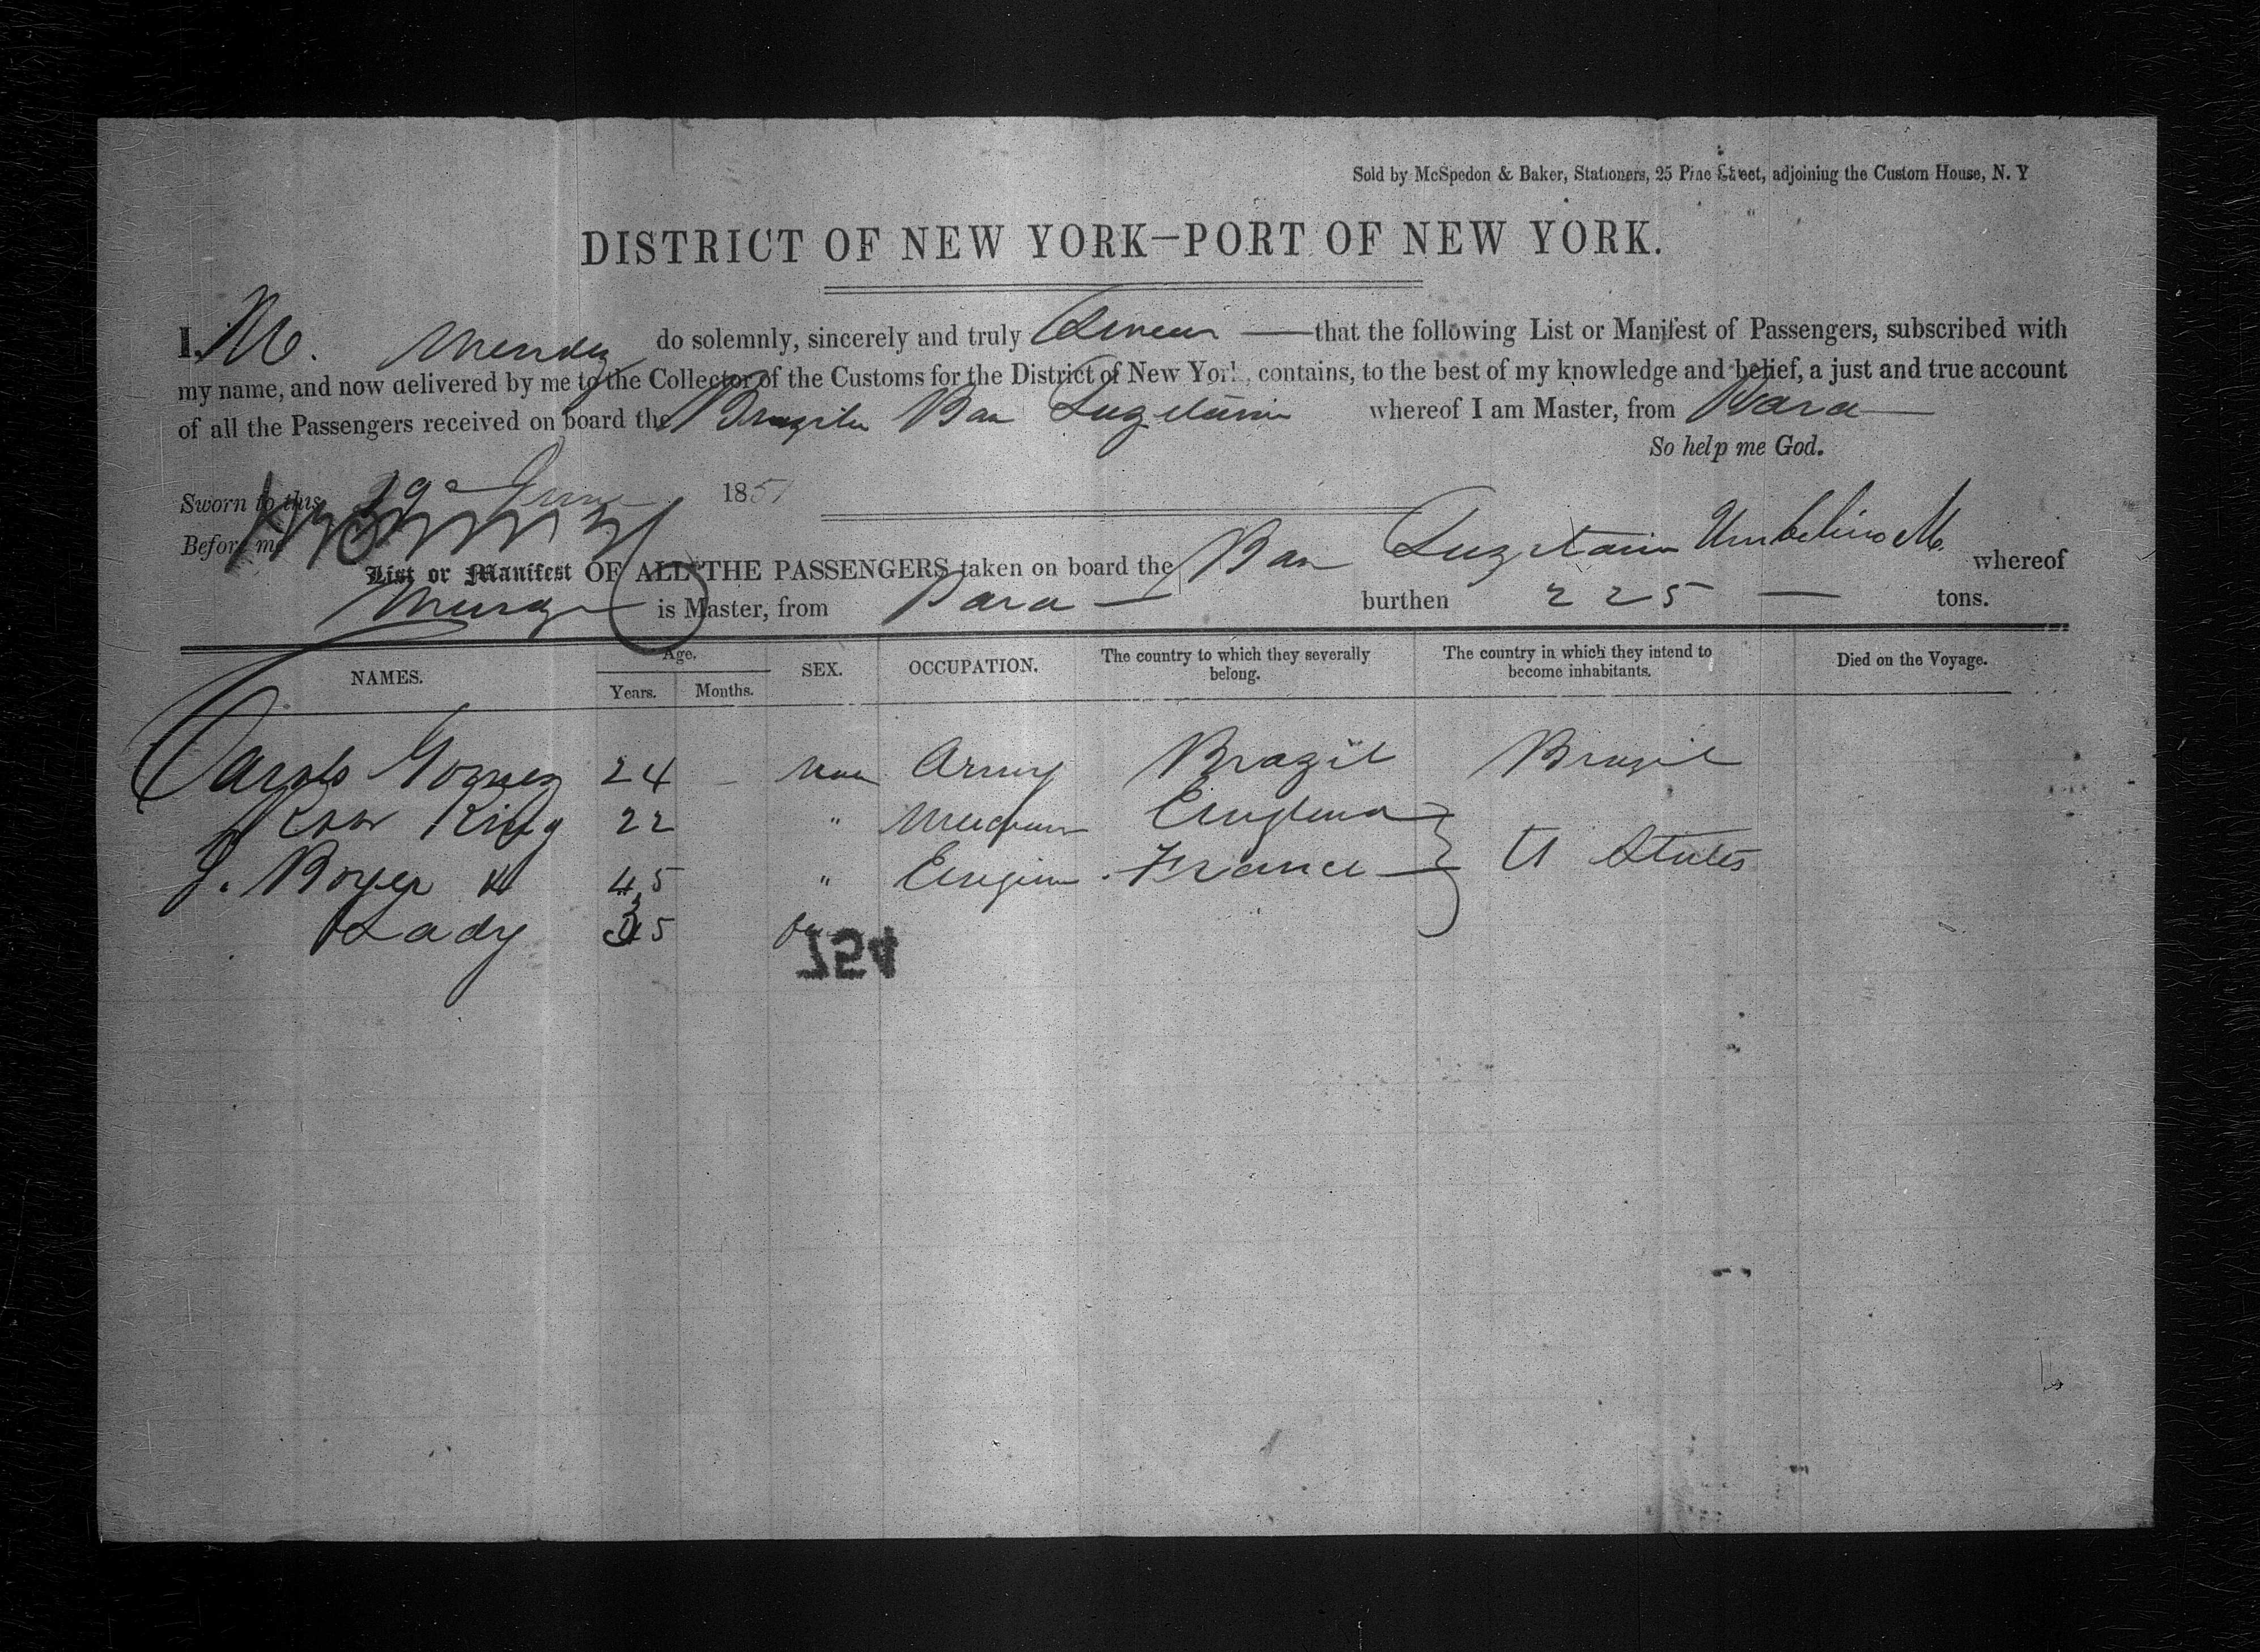 Sold by McSpedon & Baker, Stationers, 25 Pine Street, adjoining the Custom House, N. Y
DISTRICT OF NEW YORK—PORT OF NEW YORK.
I. M. Mendez do solemnly, sincerely and truly Swear — that the following List or Manifest of Passengers, subscribed with
my name, and now delivered by me to the Collector of the Customs for the District of New York, contains, to the best of my knowledge and belief, a just and true account
of all the Passengers received on board the Bar whereof I am Master, from Para —
So help me God.
Sworn to this 19 June 1851
Before me
List or Manifest OF ALL THE PASSENGERS taken on board the Bar Umbelino M. whereof
is Master, from Para — burthen 225 — tons.
NAMES. Age. Years. Months. SEX. OCCUPATION. The country to which they severally belong. The country in which they intend to become inhabitants. Died on the Voyage.
Carols Gomez 24 — Army Brazil Brazil
King 22 " England
J. Boyer 45 " France U States
Lady 35
754